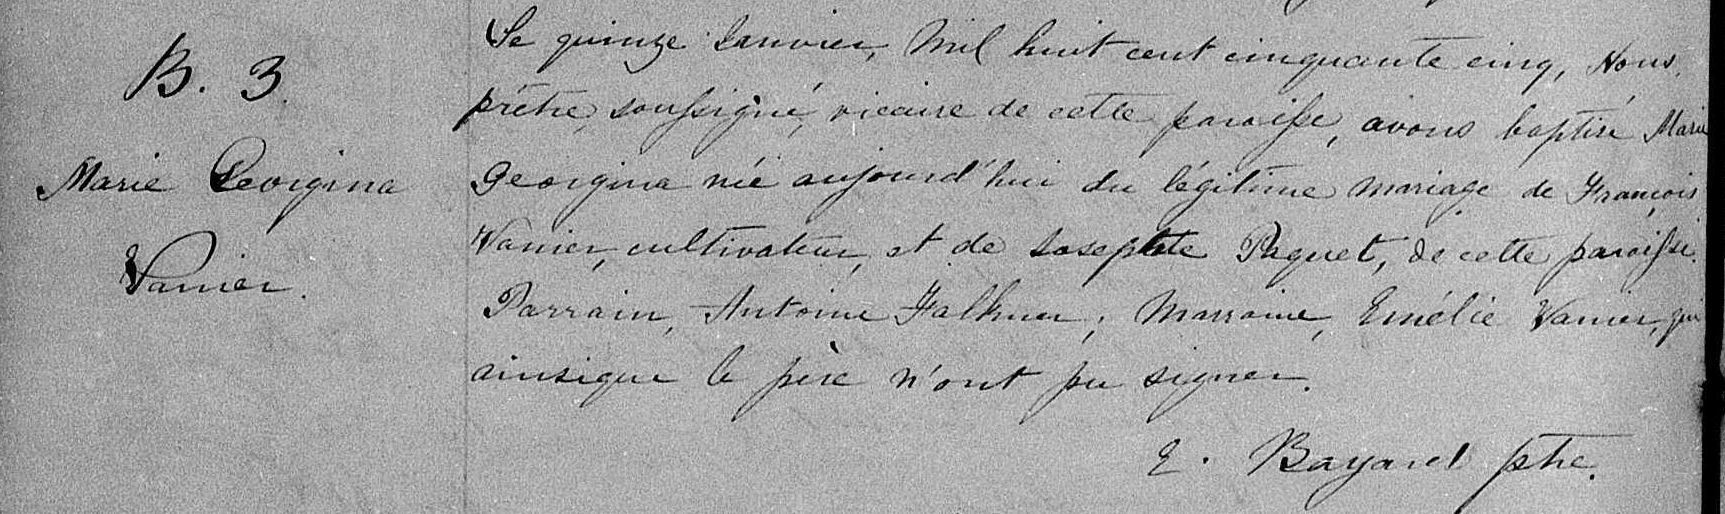 B. 3.
Marie Georgina
Vanier.
Le quinze Janvier, Mil huit cent cinquante cinq, Nous,
prêtre, soussigné, vicaire de cette paroisse, avons baptisé Marie
Georgina née aujourd'hui du légitime mariage de François
Vanier, cultivateur, et de Josephte Paquet, de cette paroisse.
Parrain, Antoine Falkner; Marraine, Emélie Vanier, qui
ainsique le père n'ont pu signer.
E. Bayard ptre.